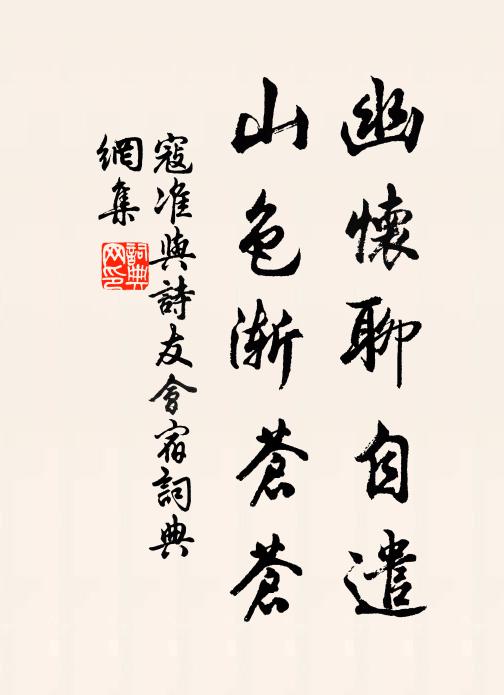 幽懷聊自遣
山色漸蒼蒼
寇准與詩友會宿詞典
網集
詞典網印